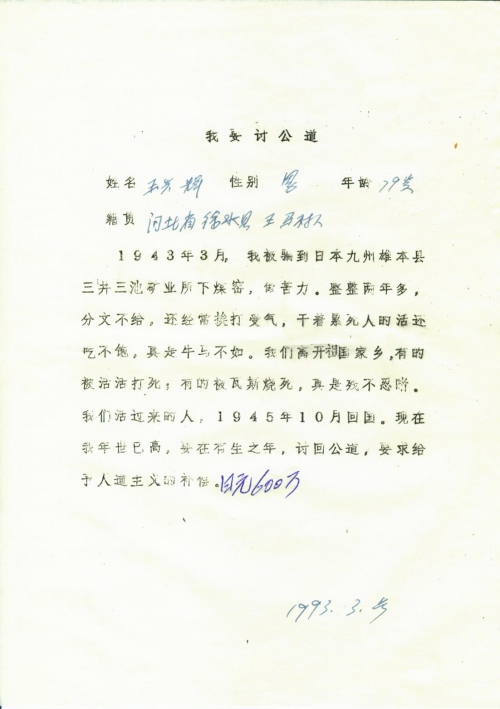 我要讨公道
姓名 王兴 性别 男 年龄 79岁
籍贯 河北省徐水县 王 村人
1943年3月,我被骗到日本九州雄本县
三井三池矿业所下煤窑,做苦力。整整两年多,
分文不给,还经常挨打受气,干着累死人的活还
吃不饱,真是牛马不如。我们离开祖国家乡,有的
被活活打死;有的被瓦斯烧死,真是残不忍睹。
我们活过来的人,1945年10月回国。现在
我年世已高,要在有生之年,讨回公道,要求给
予人道主义的补偿。日元600万
1993.3.